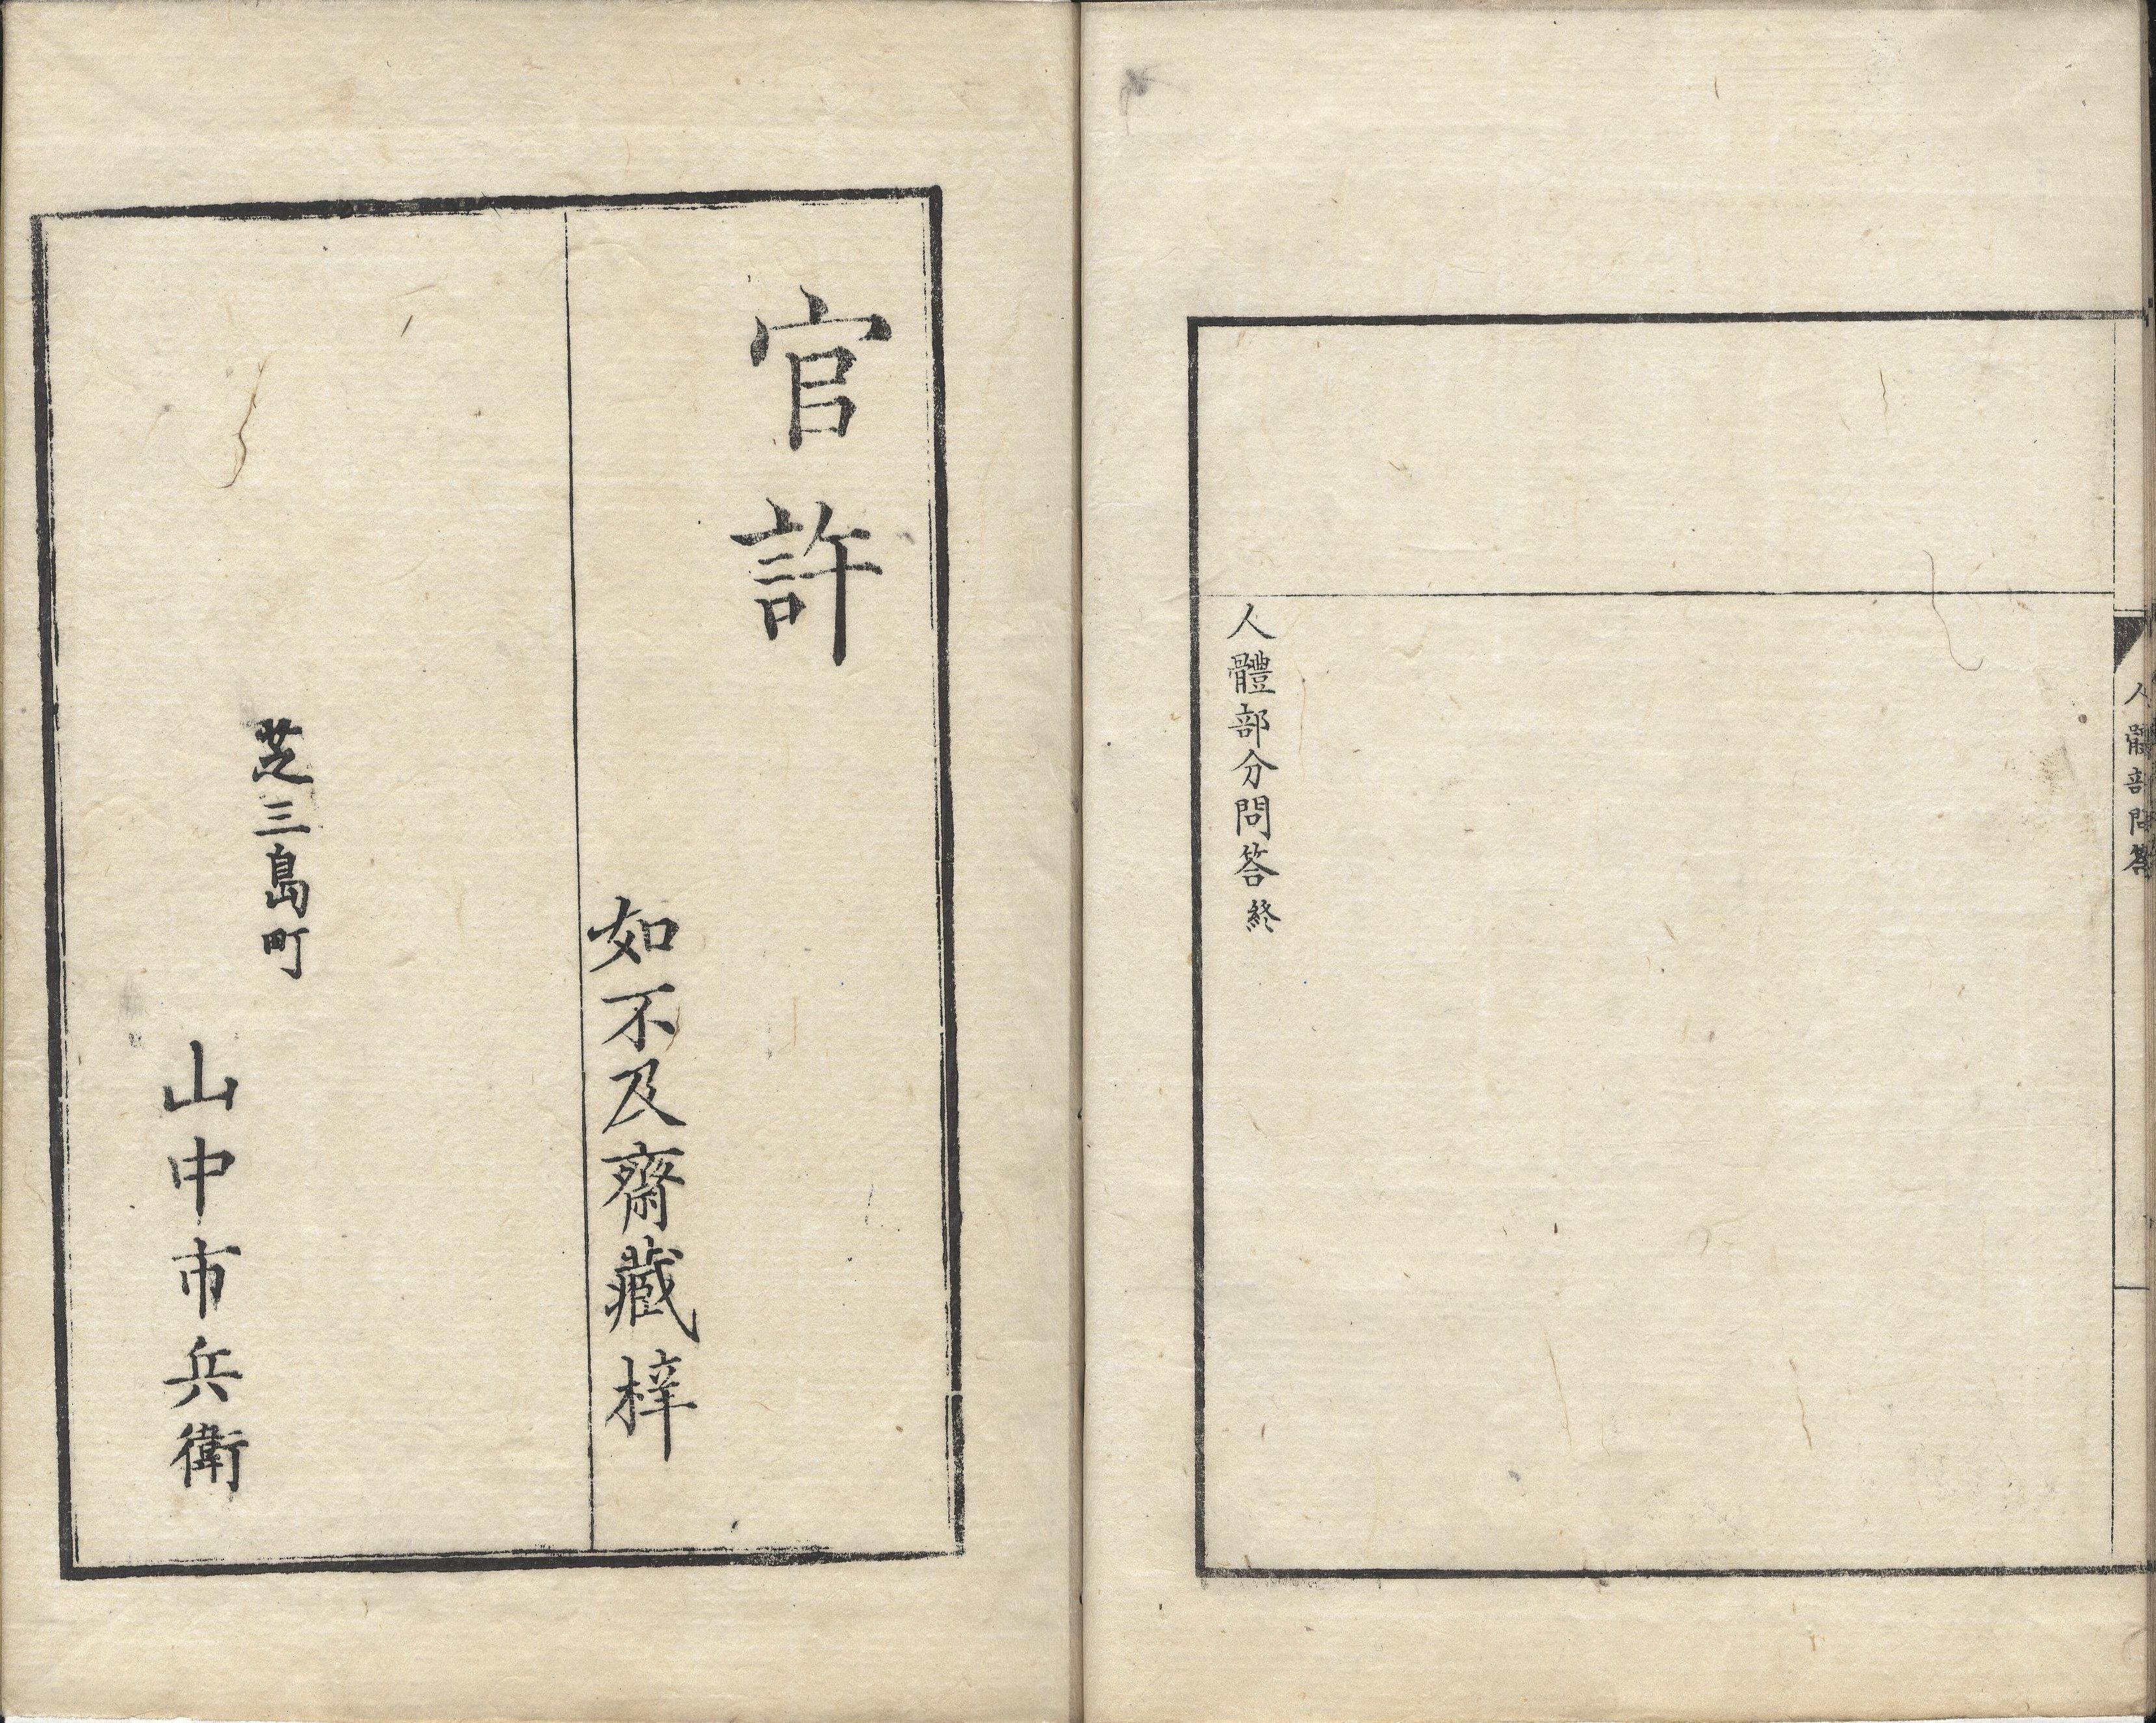 人體部問答
人體部分問答終
官許
如不及齋藏梓
芝三島町
山中市兵衛